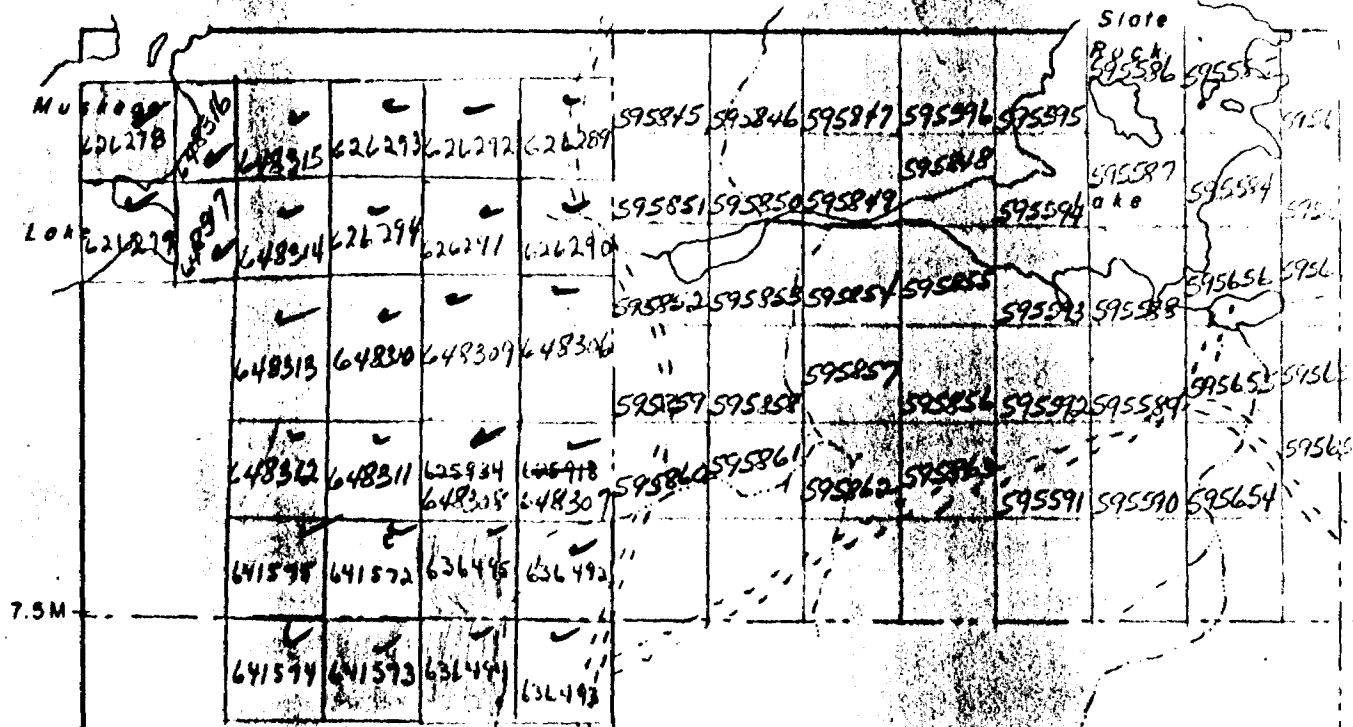 Slate
Rock
595586
Muskego
626278
648316
648315
626293
626292
626289
595845
595846
595847
595596
595595
595848
595587
595584
Lake
626279
648317
648314
626294
626291
626290
595851
595850
595849
595594
ake
595852
595853
595854
595855
595593
595588
595656
648313
648310
648309
648306
595857
595859
595858
595856
595592
595589
595655
648312
648311
625934
625918
648308
648307
595860
595861
595862
595863
595591
595590
595654
641595
641572
636495
636492
7.5M
641594
641573
636494
636493